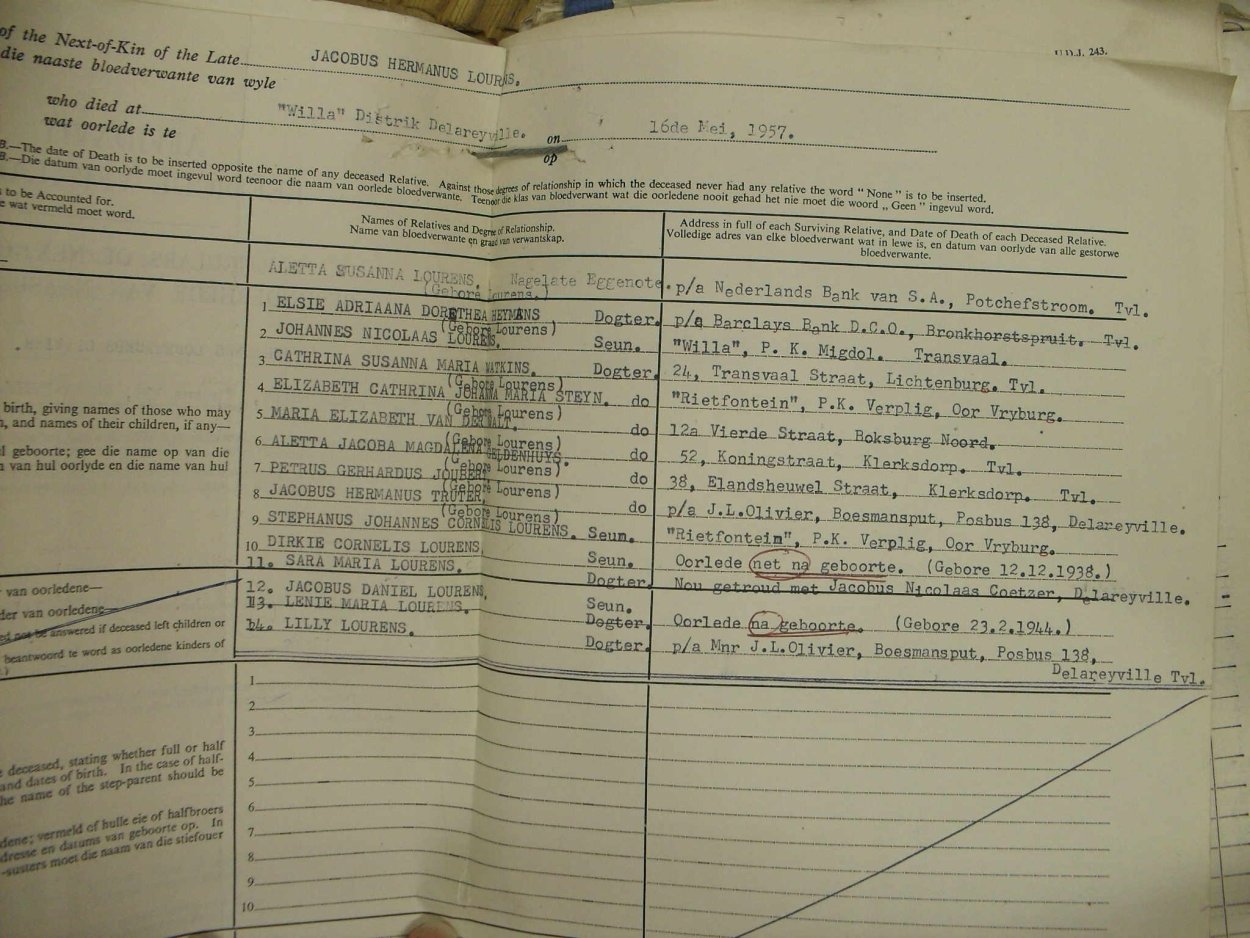 of the Next-of-Kin of the Late JACOBUS HERMANUS LOURENS.
die naaste bloedverwante van wyle
U.D.J. 243.
who died at "Willa" Distrik Delareyville. on 16de Mei, 1957.
wat oorlede is te op
B.—The date of Death is to be inserted opposite the name of any deceased Relative. Against those degrees of relationship in which the deceased never had any relative the word "None" is to be inserted.
B.—Die datum van oorlyde moet ingevul word teenoor die naam van oorlede bloedverwante. Teenoor die klas van bloedverwant wat die oorledene nooit gehad het nie moet die woord „Geen" ingevul word.
to be Accounted for.
e wat vermeld moet word.
Names of Relatives and Degree of Relationship.
Name van bloedverwante en graad van verwantskap.
Address in full of each Surviving Relative, and Date of Death of each Deceased Relative.
Volledige adres van elke bloedverwant wat in lewe is, en datum van oorlyde van alle gestorwe
bloedverwante.
ALETTA SUSANNA LOURENS. Nagelate Eggenote. p/a Nederlands Bank van S.A., Potchefstroom. Tvl.
(Gebore Lourens.)
1 ELSIE ADRIAANA DORETHEA HEYMANS Dogter. p/a Barclays Bank D.C.O., Bronkhorstspruit. Tvl.
(Gebore Lourens)
2 JOHANNES NICOLAAS LOURENS. Seun. "Willa", P. K. Migdol. Transvaal.
3 CATHRINA SUSANNA MARIA WATKINS. Dogter. 24, Transvaal Straat, Lichtenburg. Tvl.
(Gebore Lourens)
4 ELIZABETH CATHRINA JOHANNA MARIA STEYN. do "Rietfontein", P.K. Verplig, Oor Vryburg.
(Gebore Lourens)
5 MARIA ELIZABETH VAN DER WALT. do 12a Vierde Straat, Boksburg Noord.
(Gebore Lourens)
6 ALETTA JACOBA MAGDALENA GELDENHUYS. do 52, Koningstraat, Klerksdorp. Tvl.
(Gebore Lourens)
7 PETRUS GERHARDUS JOUBERT do 38, Elandsheuwel Straat, Klerksdorp. Tvl.
(Gebore Lourens)
8 JACOBUS HERMANUS TRUTER, do p/a J.L.Olivier, Boesmansput, Posbus 138, Delareyville.
(Gebore Lourens)
9 STEPHANUS JOHANNES CORNELIS LOURENS. Seun. "Rietfontein", P.K. Verplig, Oor Vryburg.
10 DIRKIE CORNELIS LOURENS, Seun. Oorlede net na geboorte. (Gebore 12.12.1938.)
11. SARA MARIA LOURENS. Dogter. Nou getroud met Jacobus Nicolaas Coetzer, Delareyville.
12. JACOBUS DANIEL LOURENS, Seun.
13. LENIE MARIA LOURENS. Dogter. Oorlede na geboorte. (Gebore 23.2.1944.)
14. LILLY LOURENS. Dogter. p/a Mnr J.L.Olivier, Boesmansput, Posbus 138,
Delareyville Tvl.
birth, giving names of those who may
, and names of their children, if any—
geboorte; gee die name op van die
van hul oorlyde en die name van hul
van oorledene—
der van oorledene—
not be answered if deceased left children or
beantwoord te word as oorledene kinders of
1
2
3
4
5
6
7
8
9
10
deceased, stating whether full or half
and dates of birth. In the case of half-
the name of the step-parent should be
dene; vermeld of hulle eie of halfbroers
dresse en datums van geboorte op. In
-susters moet die naam van die stiefouer